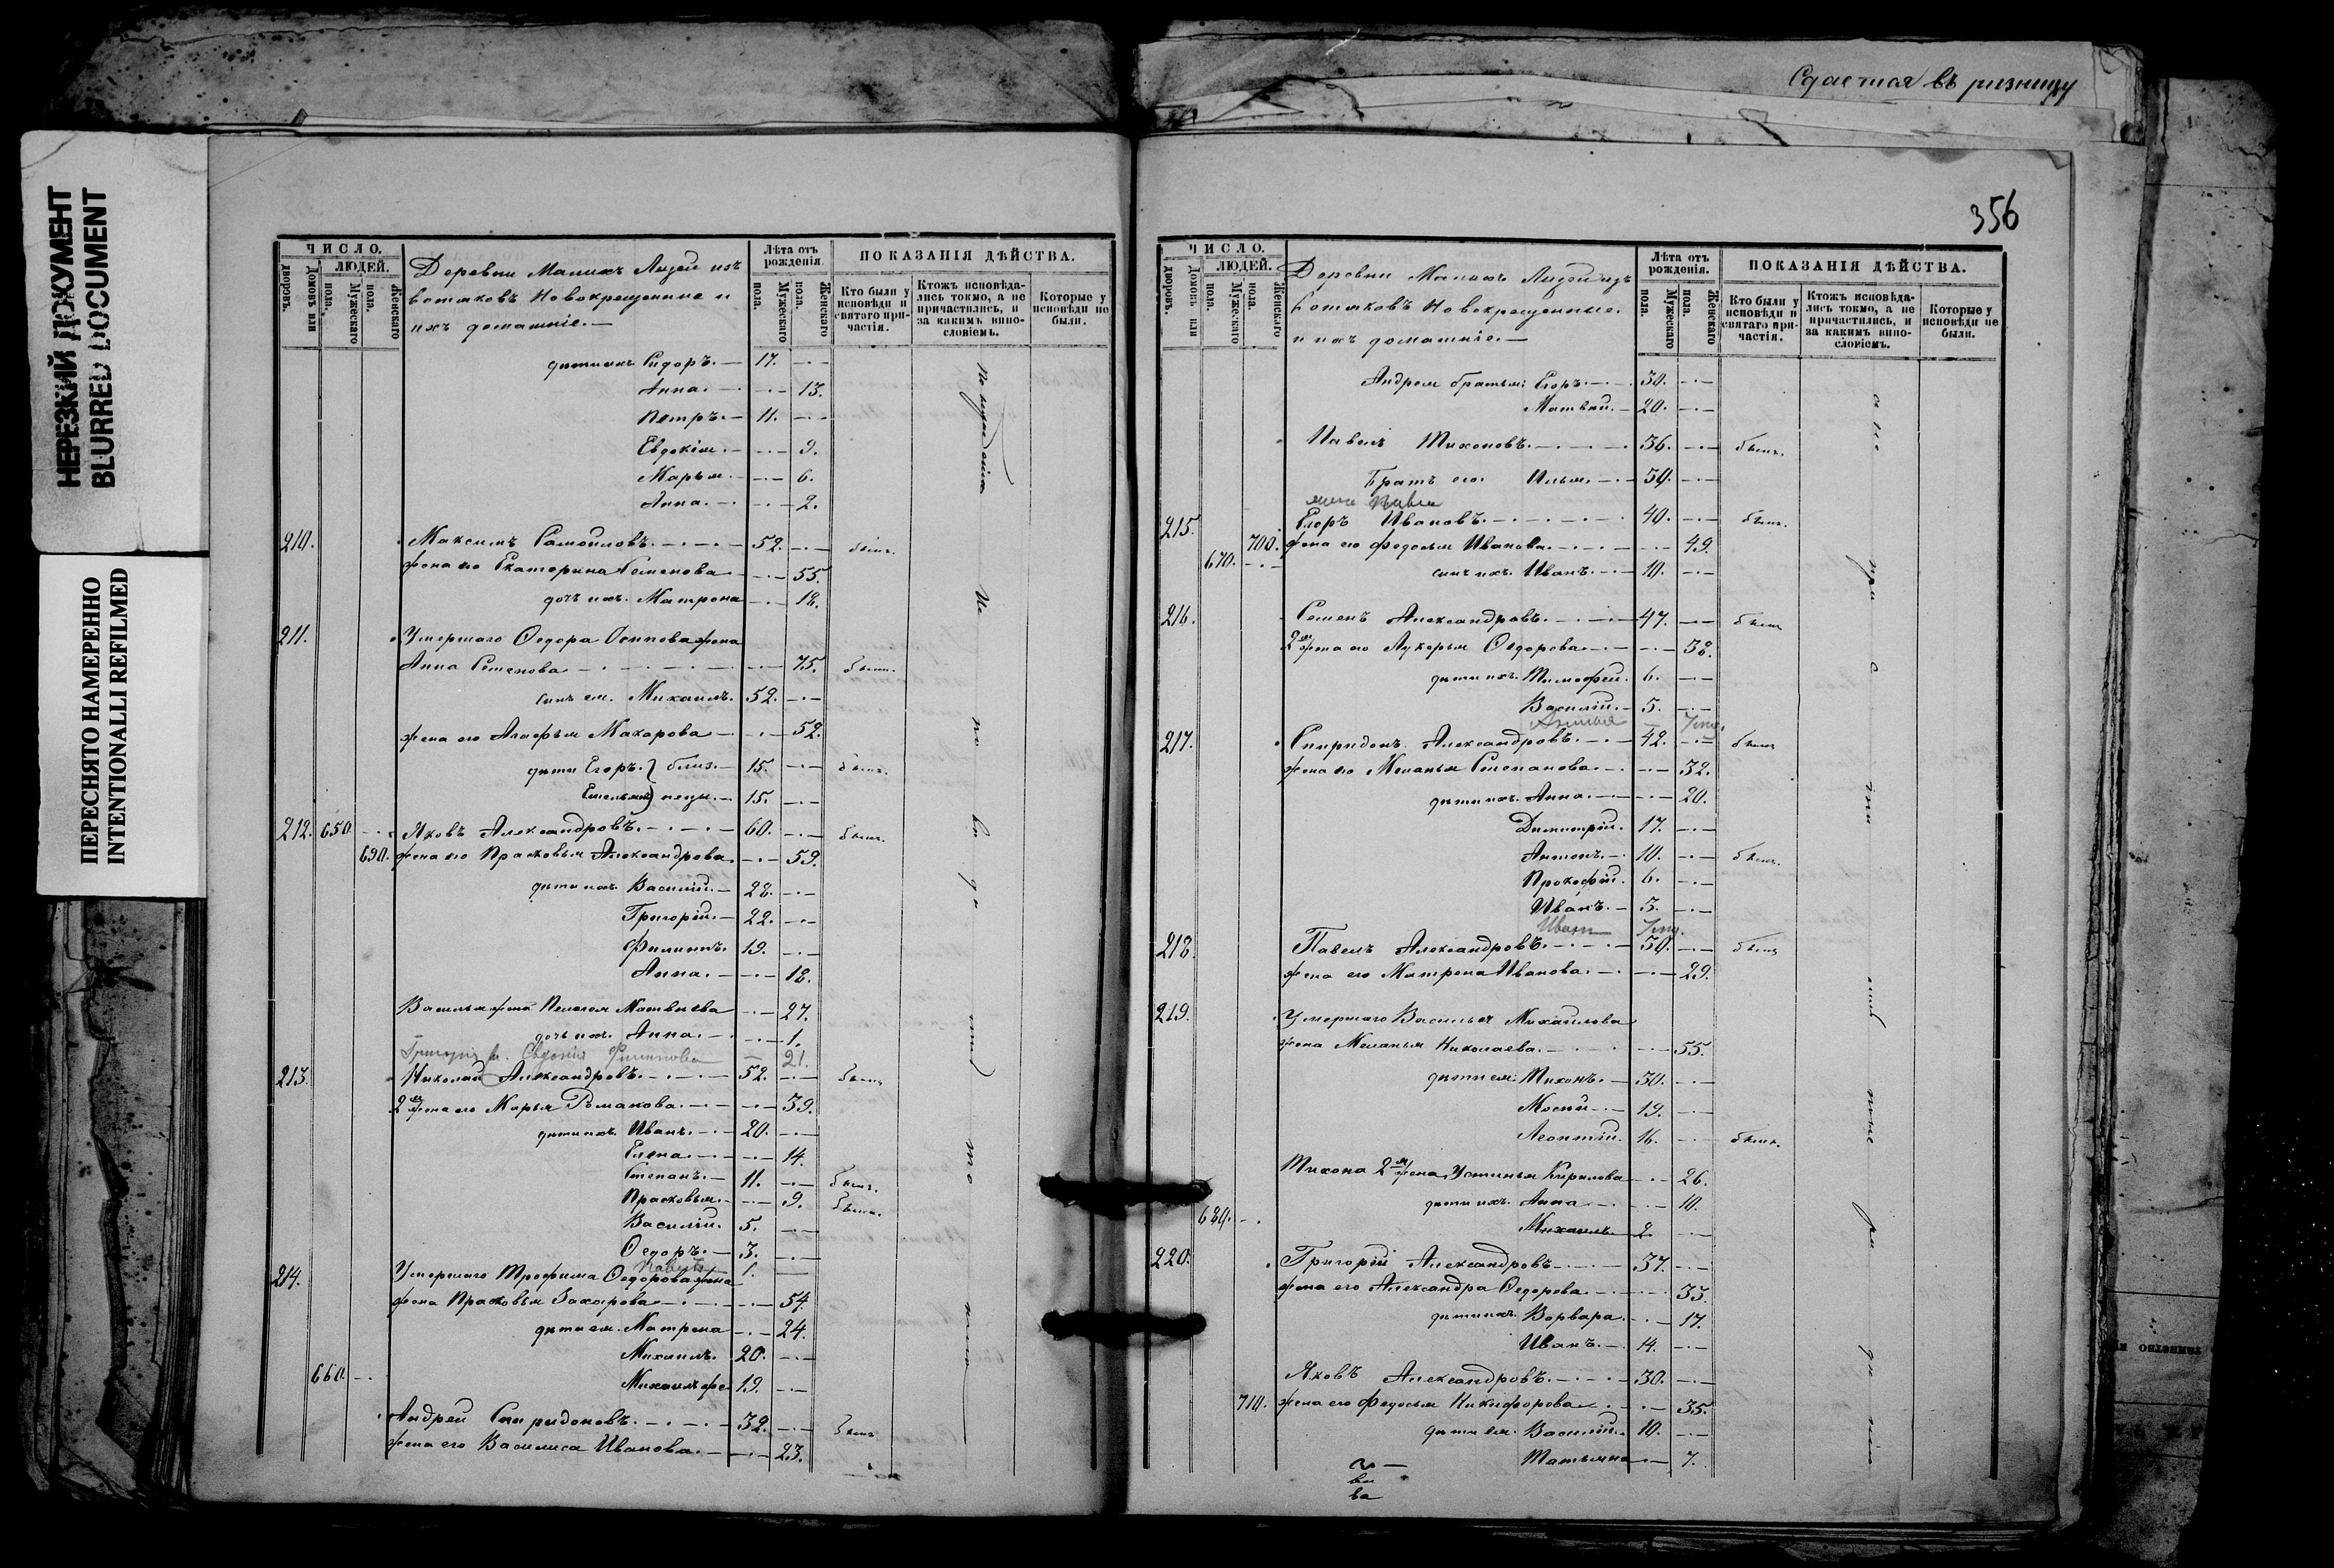 Сдается въ ризницу
НЕРЕЗКИЙ ДОКУМЕНТ
BLURRED DOCUMENT
ПЕРЕСНЯТО НАМЕРЕННО
INTENTIONALLI REFILMED
ЧИСЛО.
ЛЮДЕЙ.
дворовъ.
Домовъ или
Мужескаго пола.
Женскаго пола.
Деревни Малыхъ
вотяковъ Новокрещенные и
ихъ домашніе.—
Лѣта отъ рожденія.
Мужескаго пола.
Женскаго пола.
ПОКАЗАНІЯ ДѢЙСТВА.
Кто были у исповѣди и святаго причастія.
Ктожъ исповѣдались токмо, а не причастились, и за какимъ винословіемъ.
Которые у исповѣди не были.
дѣти ихъ Сидоръ.— 17.
Анна. 13.
Петръ.— 11.
Евдокія. 9.
Марья. 6.
Анна. 2.
210. Максимъ Самойловъ. 52. былъ.
жена его Екатерина Семенова 55.
дочь ихъ. Матрона 18.
211. Умершаго Ѳедора Осипова жена
Анна Семенова 75. были.
сынъ ея. Михаилъ. 52.
жена его Агафья Макарова 52.
дѣти Егоръ. близ- 15. былъ.
Емельянъ нецы. 15.
212. 650. Яковъ Александровъ. 60. былъ.
690. жена его Прасковья Александрова 59.
дѣти ихъ Василій. 28.
Григорій. 22.
Филиппъ. 19.
Анна. 18.
Василья жена Пелагея Матвѣева 27.
дочь ихъ. Анна. 1.
Григорія ж. Евдокія Филипова 21.
213. Николай Александровъ. 52. былъ
2я жена его Марья Романова. 39.
дѣти ихъ. Иванъ. 20.
Елена. 14.
Степанъ. 11. былъ.
Прасковья. 9. были.
Василій. 5.
Ѳедоръ. 3.
Павелъ 1.
214. Умершаго Трофима Ѳедорова жена
жена Прасковья Захарова 54.
дѣти ея. Матрена 24.
Михаилъ. 20.
660. Михаилъ же 19.
Андрей Спиридоновъ. 32. былъ
жена его Василиса Иванова. 23.
356
ЧИСЛО.
ЛЮДЕЙ.
дворовъ.
Домовъ или
Мужескаго пола.
Женскаго пола.
Деревни Малыхъ
вотяковъ Новокрещенные.
и ихъ домашніе.—
Лѣта отъ рожденія.
Мужескаго пола.
Женскаго пола.
ПОКАЗАНІЯ ДѢЙСТВА.
Кто были у исповѣди и святаго причастія.
Ктожъ исповѣдались токмо, а не причастились, и за какимъ винословіемъ.
Которые у исповѣди не были.
Андрея братья: Егоръ. 30.
Матвѣй. 20.
Павелъ Тихоновъ. 36. былъ.
Братъ его. Илья. 50.
Павла
215. Егоръ Ивановъ. 40. былъ.
700. жена его Федосья Иванова. 49.
670. сынъ ихъ. Иванъ. 10.
216. Семенъ Александровъ. 47. былъ
2я жена его Лукерья Ѳедорова 38.
дѣти ихъ. Тимофей. 6.
Василій. 5.
217. Спиридонъ Александровъ. 42. былъ
жена его Меланья Степанова. 32.
дѣти ихъ. Анна. 20.
Димитрій. 17.
Антонъ. 10. былъ.
Прокофій. 6.
Иванъ. 3.
Иванъ
218. Павелъ Александровъ. 50. былъ
жена его Матрена Иванова. 29.
219. Умершаго Василья Михайлова
жена Меланья Николаева. 55.
дѣти ея: Тихонъ. 30.
Мосей 19.
Леонтій. 16. былъ.
Тихона 2я жена Устинья Кирилова 26.
дѣти ихъ. Анна 10.
680. Михаилъ 2.
220. Григорій Александровъ 37.
жена его Александра Ѳедорова. 33.
дѣти ихъ. Варвара. 17.
Иванъ. 14.
Яковъ Александровъ. 30.
710. жена его Федосья Никифорова 35.
дѣти ея. Василій. 10.
Татьяна 7.